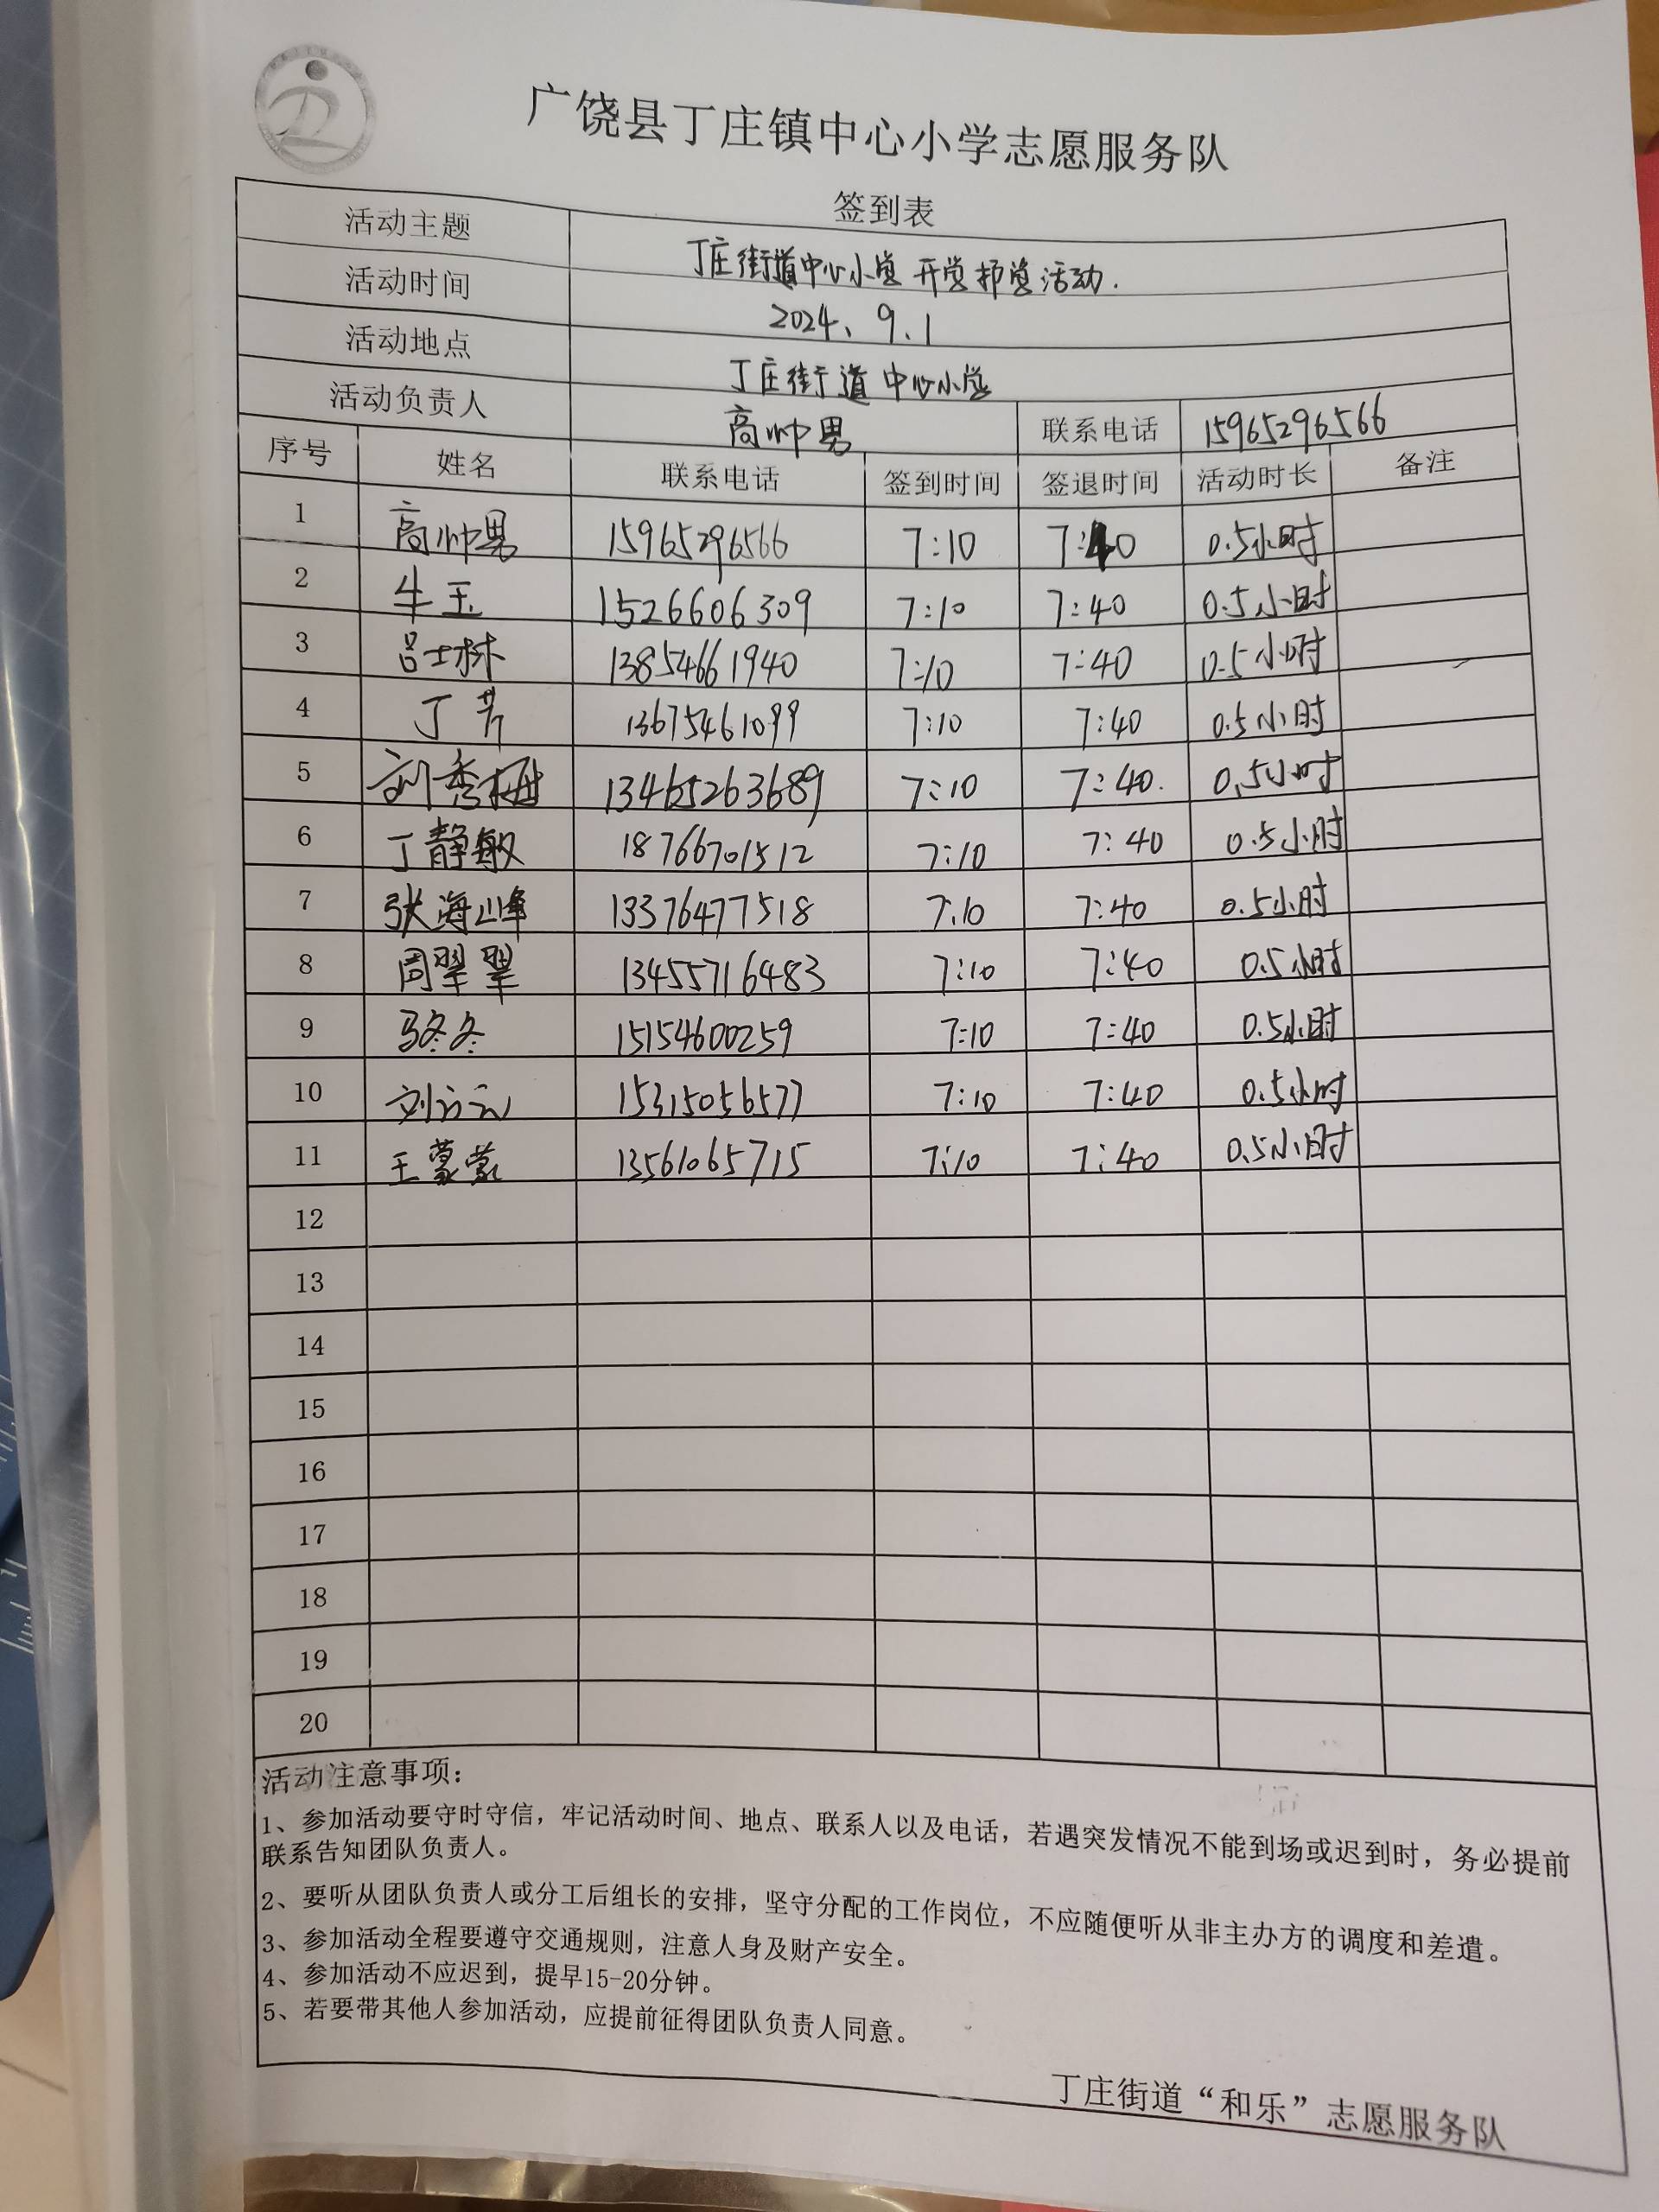 广饶县丁庄镇中心小学志愿服务队
签到表
活动主题 丁庄街道中心小学开学护学活动.
活动时间 2024、9.1
活动地点 丁庄街道中心小学
活动负责人 高帅男 联系电话 15965296566
序号 姓名 联系电话 签到时间 签退时间 活动时长 备注
1 高帅男 15965296566 7:10 7:40 0.5小时
2 牛玉 1526606309 7:10 7:40 0.5小时
3 吕士林 13854661940 7:10 7:40 0.5小时
4 丁芹 13675461099 7:10 7:40 0.5小时
5 刘秀梅 13465263689 7:10 7:40. 0.5小时
6 丁静敏 18766701512 7:10 7:40 0.5小时
7 张海峰 13376477518 7:10 7:40 0.5小时
8 周翠翠 13455716483 7:10 7:40 0.5小时
9 马冬冬 15154600259 7:10 7:40 0.5小时
10 刘方云 15315056577 7:10 7:40 0.5小时
11 王蒙蒙 13561065715 7:10 7:40 0.5小时
12
13
14
15
16
17
18
19
20
活动注意事项：
1、参加活动要守时守信，牢记活动时间、地点、联系人以及电话，若遇突发情况不能到场或迟到时，务必提前
联系告知团队负责人。
2、要听从团队负责人或分工后组长的安排，坚守分配的工作岗位，不应随便听从非主办方的调度和差遣。
3、参加活动全程要遵守交通规则，注意人身及财产安全。
4、参加活动不应迟到，提早15-20分钟。
5、若要带其他人参加活动，应提前征得团队负责人同意。
丁庄街道“和乐”志愿服务队